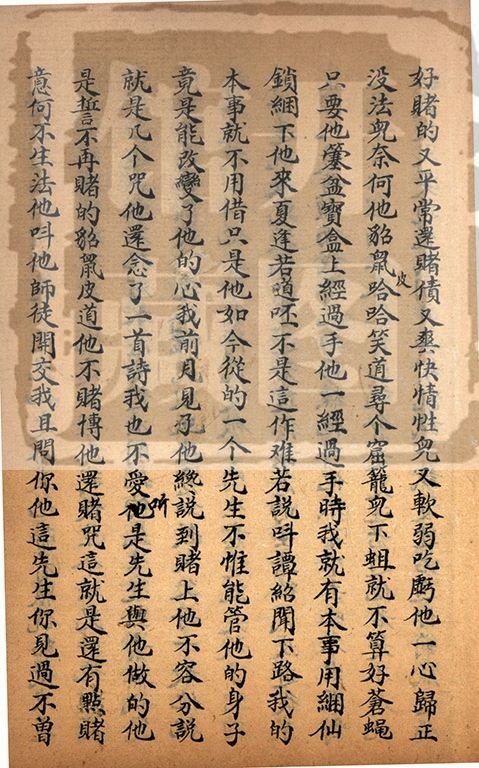 好賭的又平常還賭債又爽快情性兒又軟弱吃虧他一心歸正
没法兒奈何他貂鼠皮哈哈笑道尋个窟籠兒下蛆就不算好蒼蝇
只要他簍盆寶盒上經過手他一經過手時我就有本事用綑仙
鎖綑下他來夏逢若道呸不是這作难若説呌譚紹聞下路我的
本事就不用借只是他如今從的一个先生不惟能管他的身子
竟是能改變了他的心我前月見了他纔説到賭上他不容分説
就是几个咒他還念了一首詩我也不愛听他是先生與他做的他
是誓不再賭的貂鼠皮道他不賭博他還賭咒這就是還有點賭
意何不生法他呌他師徒開交我且問你他這先生你見過不曾